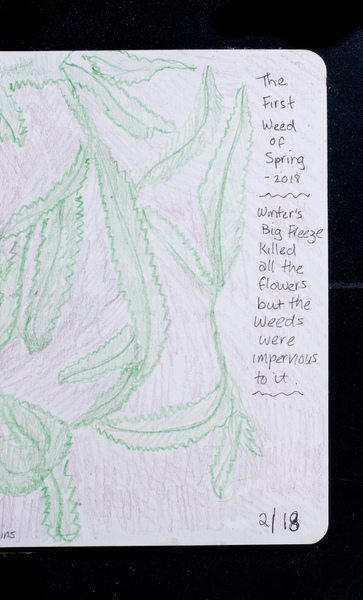 The
First
Weed
of
Spring
-2018
Winter's
Big Freeze
killed
all the
flowers
but the
weeds
were
impervious
to it.
2/18